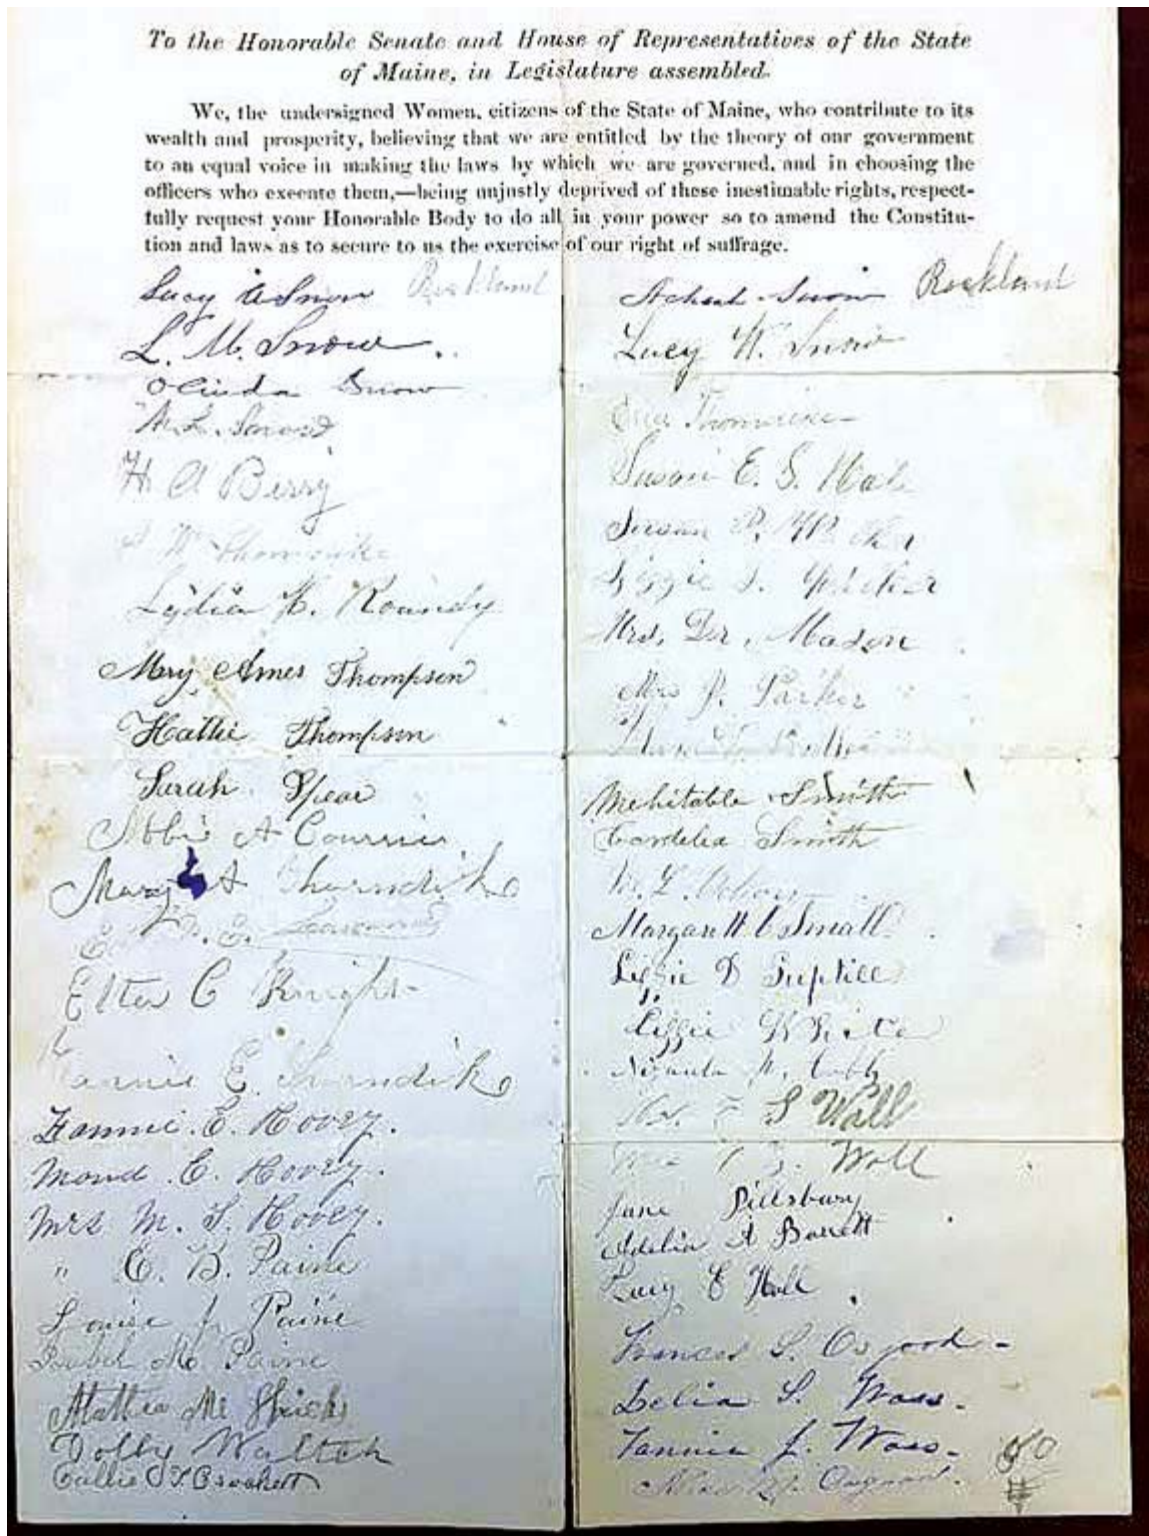 To the Honorable Senate and House of Representatives of the State
of Maine, in Legislature assembled.
We, the undersigned Women, citizens of the State of Maine, who contribute to its
wealth and prosperity, believing that we are entitled by the theory of our government
to an equal voice in making the laws by which we are governed, and in choosing the
officers who execute them,—being unjustly deprived of these inestimable rights, respect-
fully request your Honorable Body to do all in your power so to amend the Constitu-
tion and laws as to secure to us the exercise of our right of suffrage.
Lucy A Snow Rockland
L. M. Snow
Olinda Snow
M. L. Snow
H A Berry
W
Lydia H. Roundy
Mary Ames Thompson
Hattie Thompson
Sarah Spear
Abbie A
Mary A Thorndike
E.
C Knight
Annie E. Thorndike
Fannie E. Hovey.
Maud E. Hovey.
Mrs M. S. Hovey.
" E. B. Paine
Louise J. Paine
Isabel M. Paine
Dolly
Callie T. Crockett
Snow Rockland
Lucy W. Snow
Susan E. S.
Susan P.
Lizzie S.
Mrs. Dr. Mason
Mrs J. Parker
Mehitable Smith
Cordelia Smith
L.
Margarett C Small
Lizzie D Tuptill
Lizzie White
Cobb
S Wall
Wall
Jane Pillsbury
Adelia A Barrett
Lucy E Hall
Frances S. Osgood
Delia S. Wass.
Fannie J. Wass
Osgood.
50